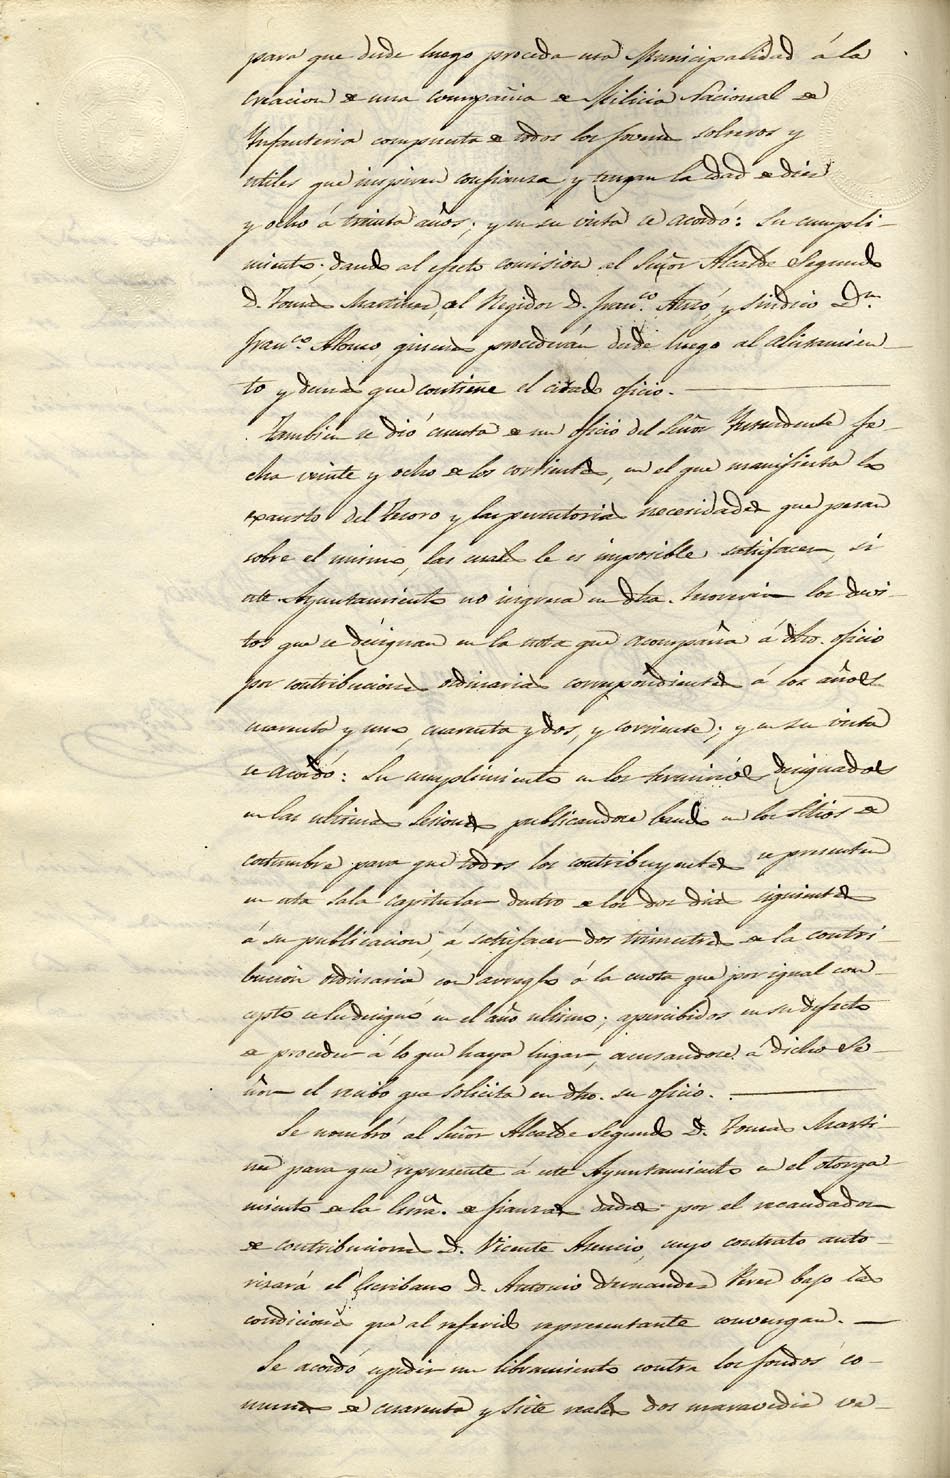 para que desde luego proceda esa Municipalidad á la
creacion de una compañia de Milicia Nacional de
Infanteria compuesta de todos los jovenes solteros y
utiles que inspiren confianza y tengan la edad de diez
y ocho á treinta años; y en su vista se acordó: Su cumpli-
miento, dando al efecto comision al Señor Alcalde Segundo
D. Tomas Martinez, al Regidor D. Franco. y Sindico Dn.
Franco. Alonso quienes procederán desde luego al alistamien-
to y demas que contiene el citado oficio.
Tambien se dió cuenta de un oficio del Señor Yntendente fe-
cha veinte y ocho de los corrientes, en el que manifiesta lo
exausto del Tesoro y las perentorias necesidades que pesan
sobre el mismo, las cuales le es imposible satisfacer, si
este Ayuntamiento no ingresa en dha. Tesoreria los devi-
tos que se designan en la nota que acompaña á dho. oficio
por contribuciones ordinarias correspondientes á los años
cuarenta y uno, cuarenta y dos, y corriente; y en su vista
se acordó: Su cumplimiento en los terminos designados
en las ultimas sesiones publicandose bando en los sitios de
costumbre para que todos los contribuyentes se presenten
en esta sala capitular dentro de los dos dias siguientes
á su publicacion, á satisfacer dos trimestres de la contri-
bucion ordinaria con arreglo á la cuota que por igual con-
cepto se les designó en el año ultimo; apercibidos en su defecto
de proceder á lo que haya lugar, acusandose á dicho Se-
ñor el recibo que solicita en dho. su oficio.
Se nombró al Señor Alcalde Segundo D. Tomas Marti-
nez para que represente á este Ayuntamiento en el otorga-
miento de la Escra. de fianzas dadas por el recaudador
de contribuciones D. Vicente Asencio, cuyo contrato auto-
rizará el Escribano D. Antonio Hernandez Perez bajo las
condiciones que al referido representante convengan.
Se acordó espedir un libramiento contra los fondos co-
munes de cuarenta y siete reales dos maravedis ve-